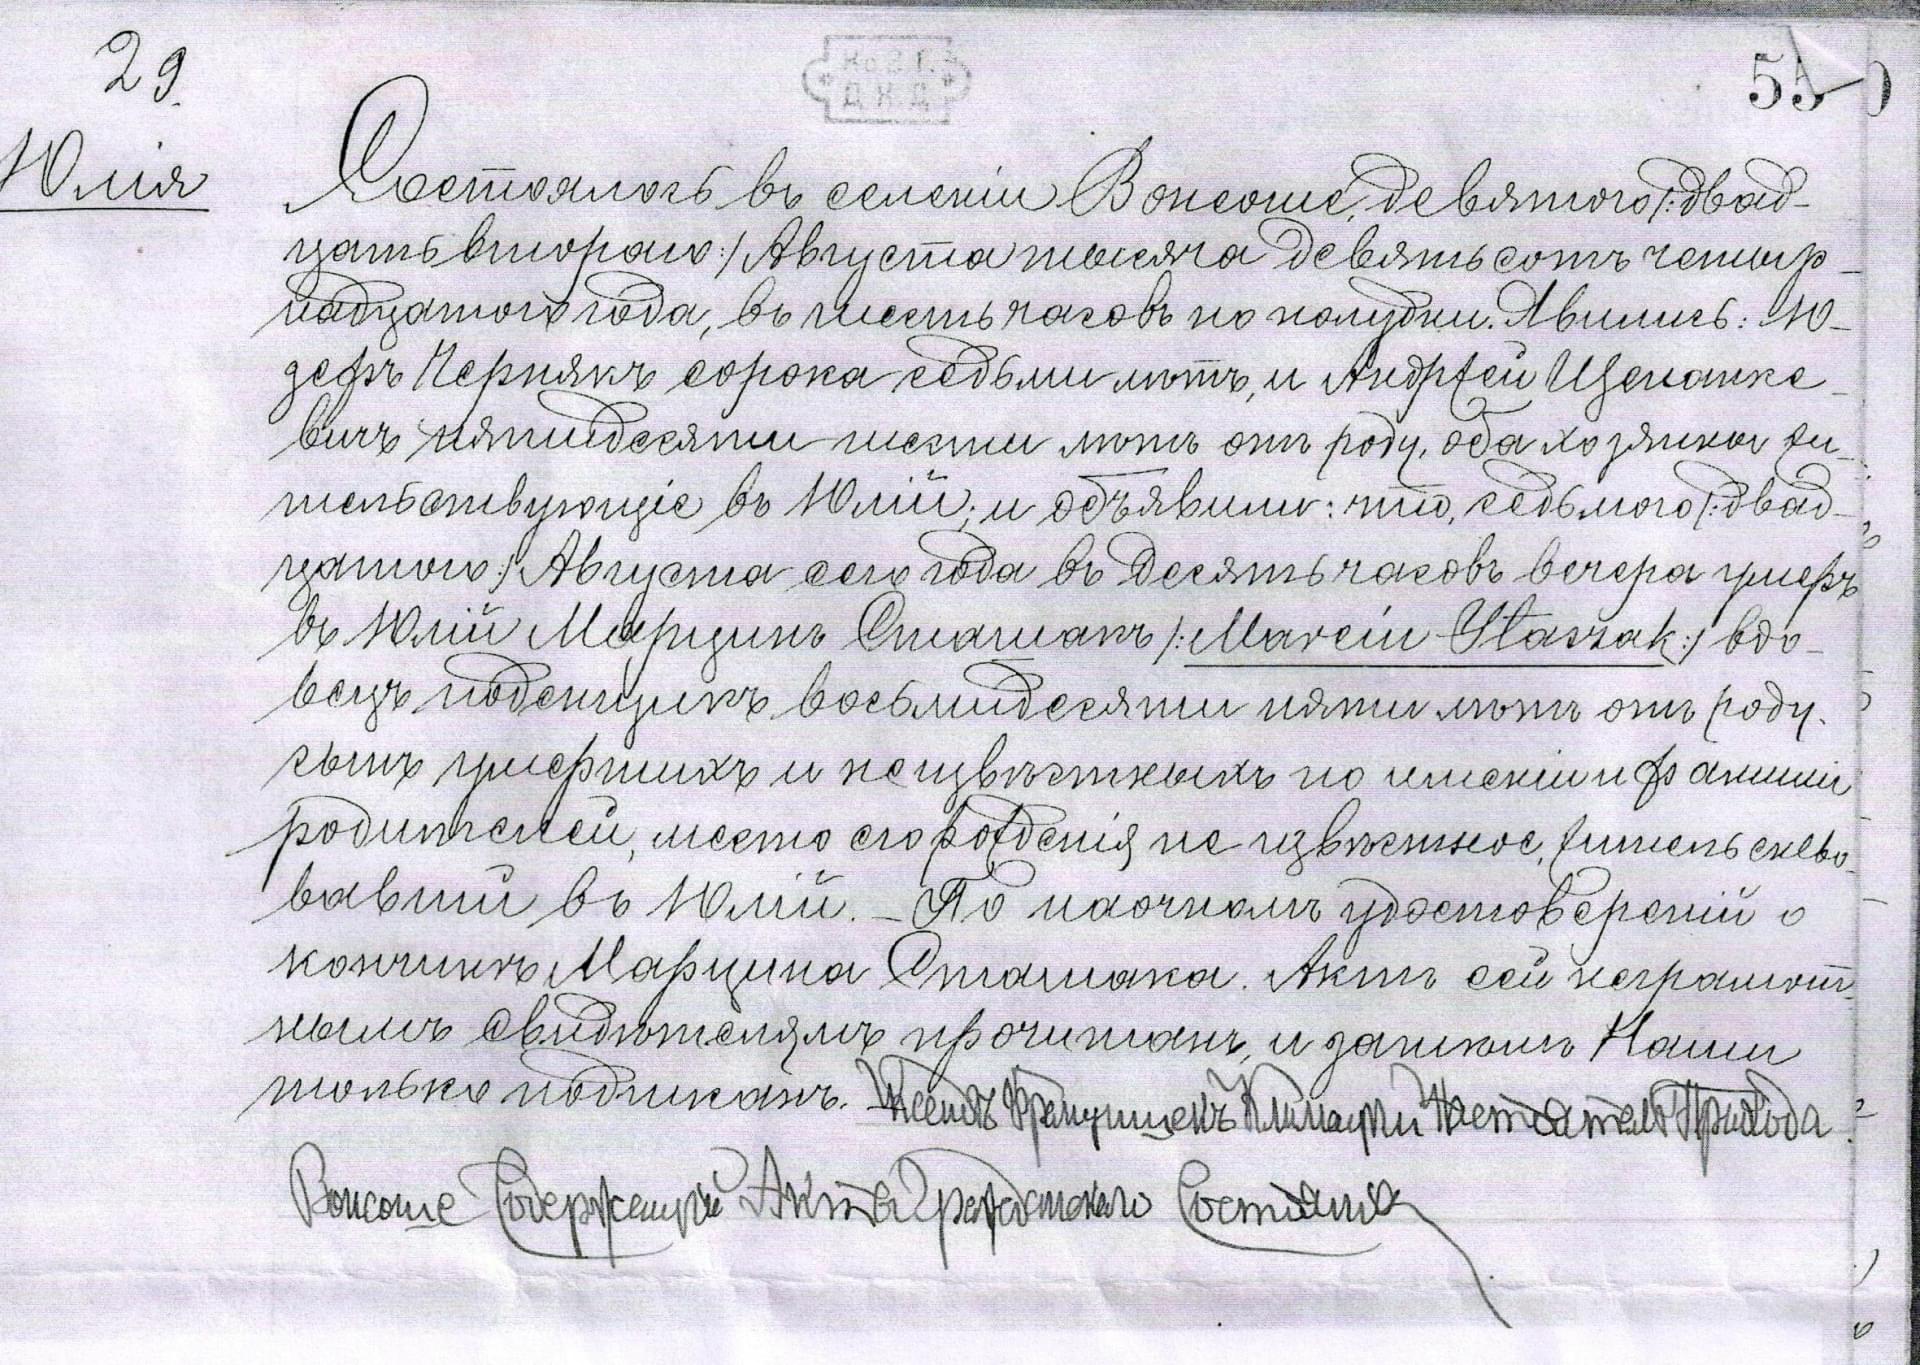 29.
55
Юлія
Состоялось въ селеніи Вонсоше, девятого /: двад-
цать втораго :/ Августа тысяча девятьсотъ четыр-
надцатого года, въ шесть часовъ по полудни. Явились: Ю-
зефъ Чернякъ сорока седьми лѣтъ, и Андржей Щепанке-
вичъ пятидесяти шести лѣтъ отъ роду, оба хозяины жи-
тельствующіе въ Юлій; и объявили: что, седьмого /: двад-
цатого :/ Августа сего года въ десять часовъ вечера умеръ
въ Юлій Марцинъ Сташакъ /: Marcin Staszak :/ вдо-
вецъ поденщикъ восьмидесяти пяти лѣтъ отъ роду.
сынъ умершихъ и неизвѣстныхъ по имени и фамиліи
родителей, место его рожденія не извѣстное, жительство-
вавшій въ Юлій. – По наочномъ удостовереній о
кончинѣ Марцина Сташака. Актъ сей неграмот-
нымъ свидѣтелямъ прочитанъ, и запискомъ Нами
только подписанъ. Ксендзъ Францишекъ Настоятель Прихода
Вонсоше Содержащій Акты Гражданского Состоянія